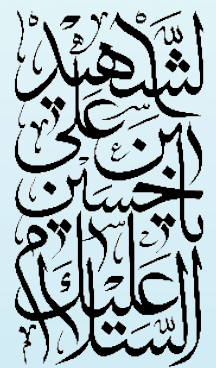 السلام عليك
يا حسين
بن علي
الشهيد